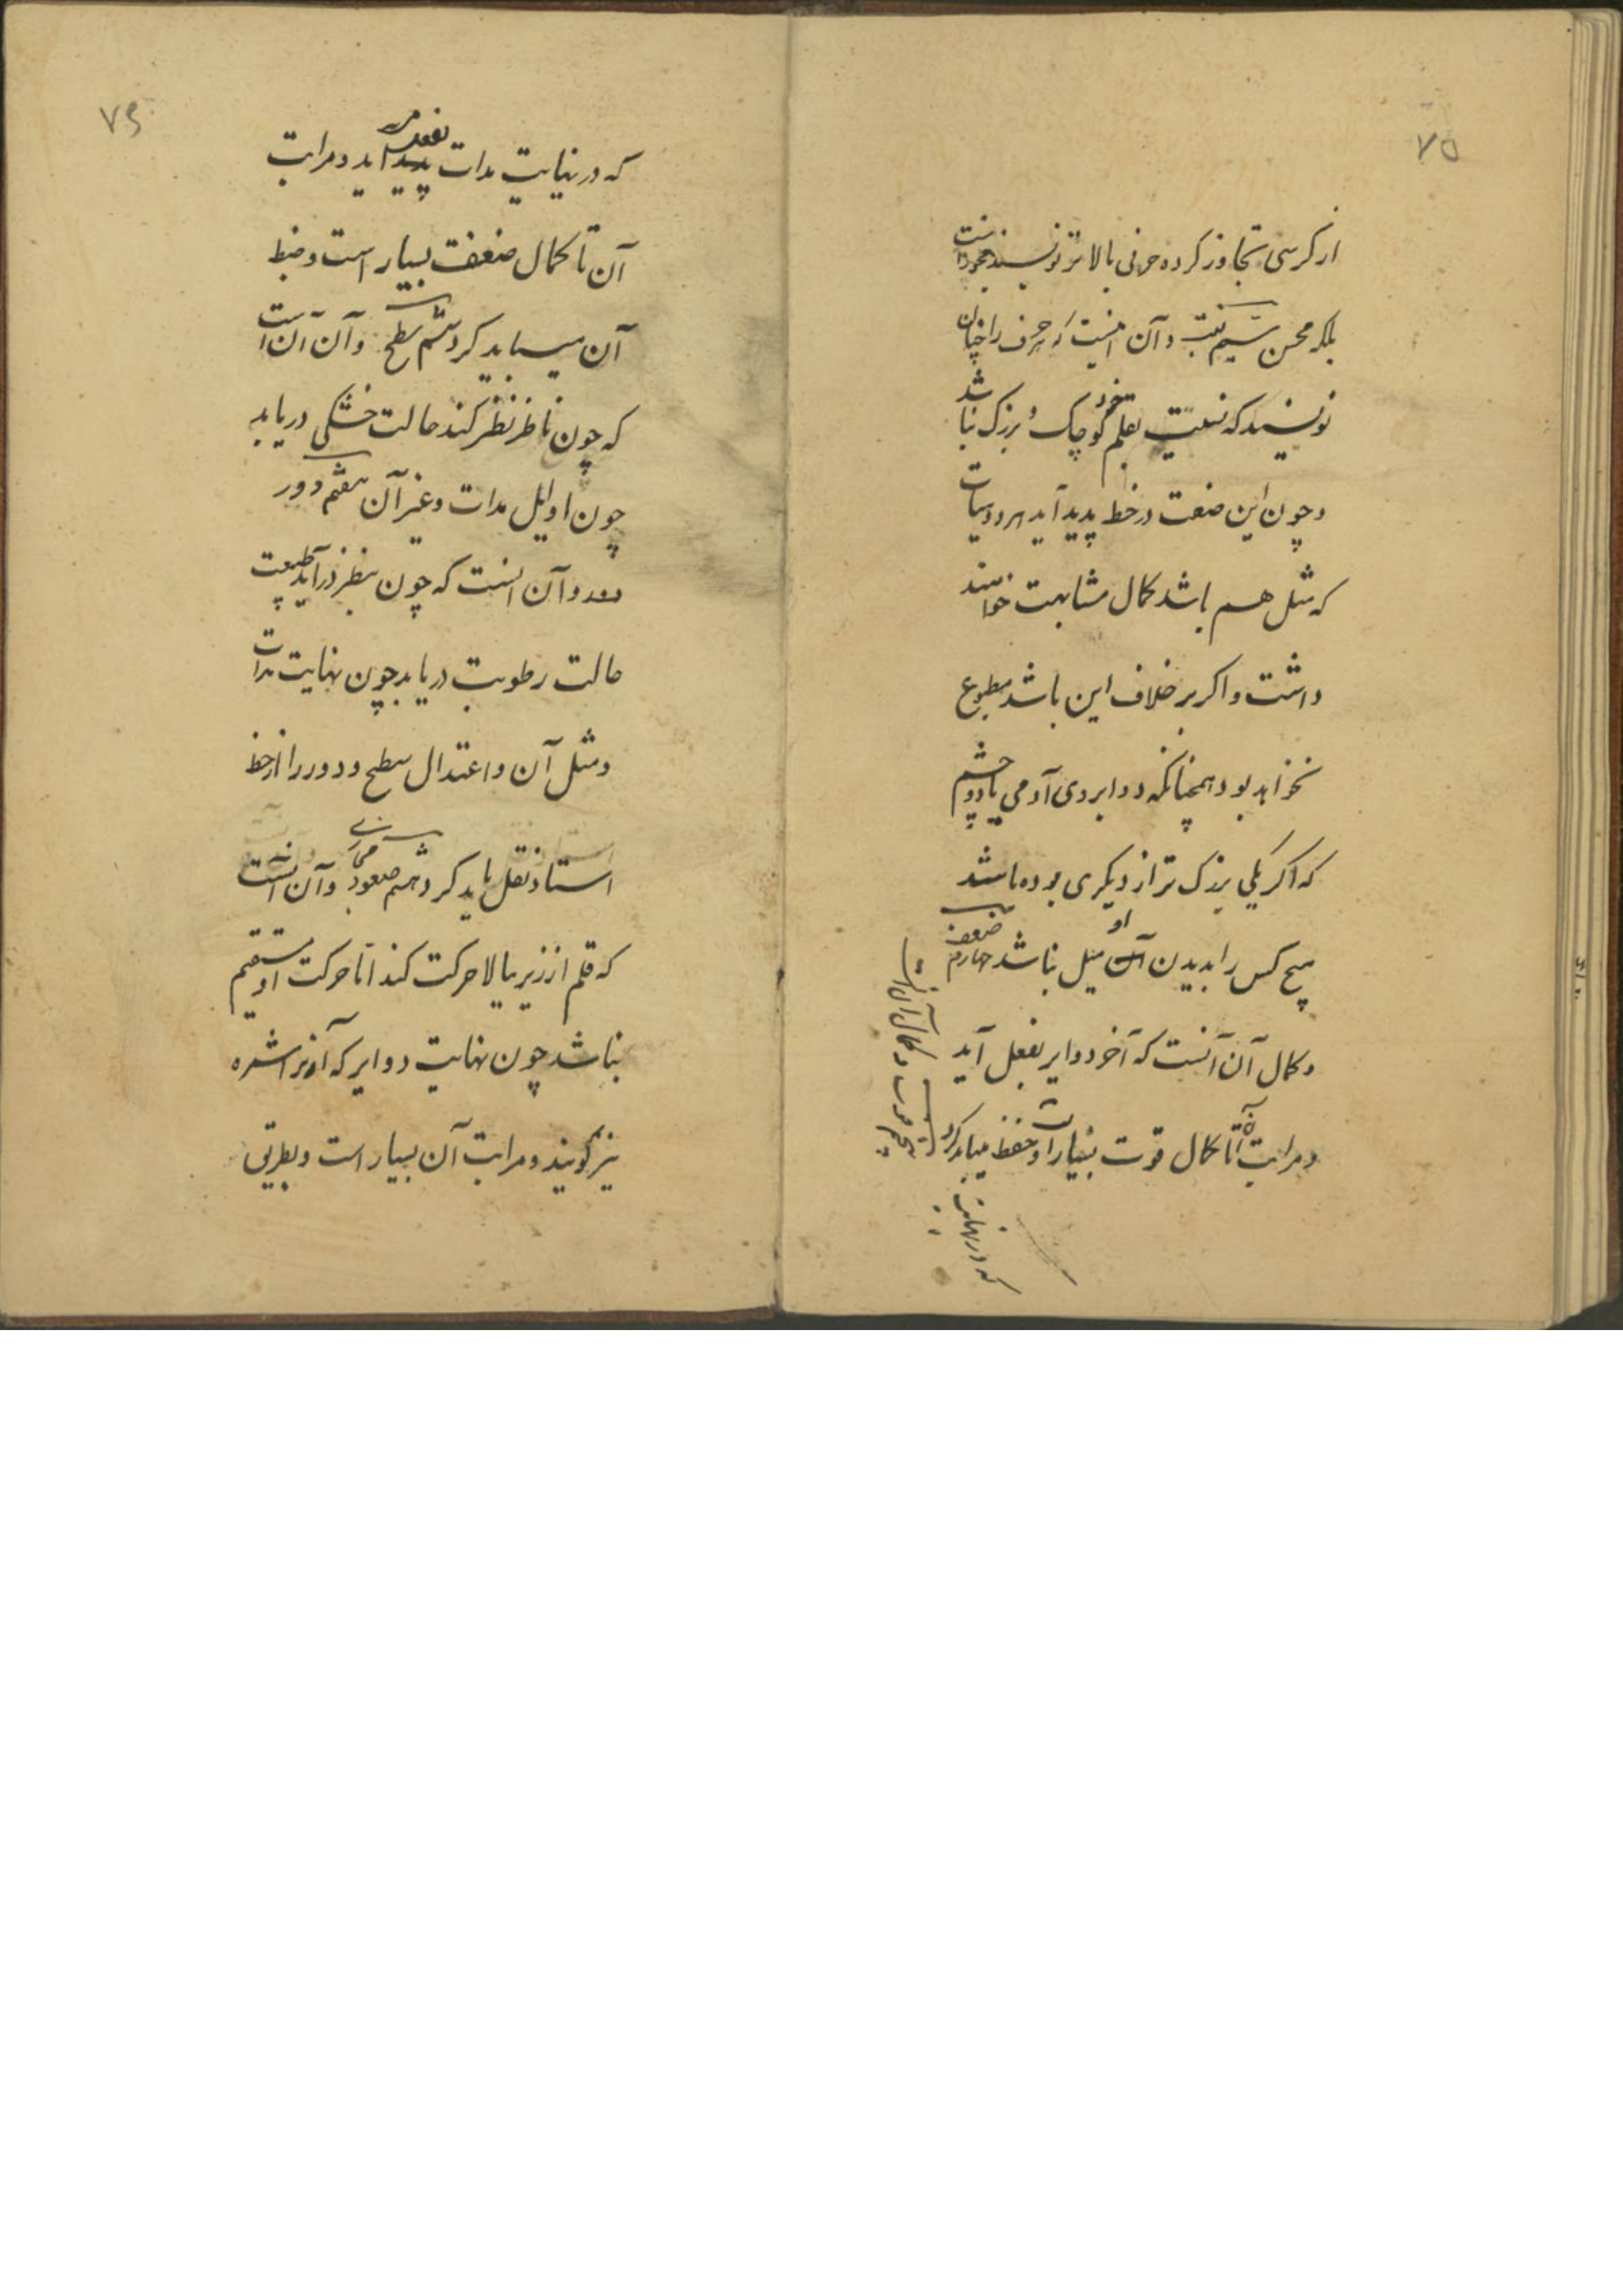 ۷۵
از کرسی تجاوز کرده حرفی بالاتر نویسند محمود است
بلکه محسن سیم نسبت و آن اینست که حرف را چنان
نویسند که نسبت بقلم خود کوچک و بزرک نباشد
و چون این صفت در خط پدید آید هر دو سیات
که مثل هم باشد کمال مشابهت خواهند
داشت و اکر بر خلاف این باشد مطبوع
نخواهد بود همچنانکه دو ابروی آدمی یا دو چشم
که اکر یکی بزرک تر از دیکری بوده باشد
هیچ کس را بدیدن او میل نباشد چهارم ضعف
و کمال آن آنست که آخر دوایر بفعل آید
و مراتب آن تا کمال قوت بسیار است و حفظ میباید کرد
پنجم قوت و کمال آن آنست
که در نهایت
۷۶
که در نهایت مدات بفعل می آید و مراتب
آن تا کمال ضعف بسیار است و ضبط
آن میباید کرد ششم سطح و آن آن است
که چون ناظر نظر کند حالت خشکی دریابد
چون اوایل مدات و غیر آن هفتم دور
و آن انست که چون بنظر درآید طبیعت
حالت رطوبت دریابد چون نهایت مدات
و مثل آن و اعتدال سطح و دور را از خط
استاد نقل باید کرد هشتم صعود مجازی و آن آنست
که قلم از زیر ببالا حرکت کند اما حرکت او مستقیم
نباشد چون نهایت دوایر که آنرا شمره
نیز کویند و مراتب آن بسیار است و بطریق